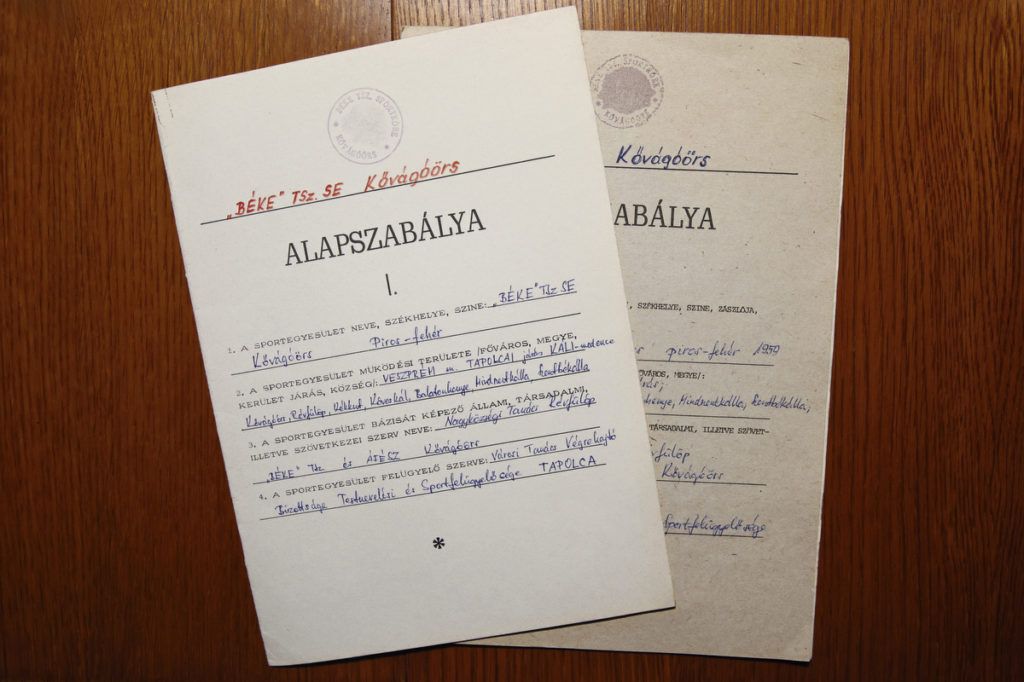 BÉKE TSZ. SPORTKÖRE
* KŐVÁGÓÖRS *
„BÉKE" TSz. SE Kővágóörs
ALAPSZABÁLYA
I.
1. A SPORTEGYESÜLET NEVE, SZÉKHELYE, SZINE: „BÉKE" TSz SE
Kővágóörs Piros-fehér
2. A SPORTEGYESÜLET MÜKÖDÉSI TERÜLETE /FŐVÁROS, MEGYE,
KERÜLET JÁRÁS, KÖZSÉG/: VESZPRÉM m. TAPOLCAI járás KÁLI-medence
Kővágóörs, Révfülöp, Kékkut, Köveskál, Balatonhenye, Mindszentkálla, Szentbékkálla
3. A SPORTEGYESÜLET BÁZISÁT KÉPEZŐ ÁLLAMI, TÁRSADALMI,
ILLETVE SZÖVETKEZEI SZERV NEVE: Nagyközségi Tanács Révfülöp
„BÉKE" Tsz és ÁFÉSZ Kővágóörs
4. A SPORTEGYESÜLET FELÜGYELŐ SZERVE: Városi Tanács Végrehajtó
Bizottsága Testnevelési és Sportfelügyelősége TAPOLCA
*
BÉKE TSZ. SPORTKÖRE
KŐVÁGÓÖRS
Kővágóörs
ABÁLYA
, SZÉKHELYE, SZINE, ZÁSZLÓJA,
piros-fehér 1959
FŐVÁROS, MEGYE/:
henye, Mindszentkálla, Szentbékkálla,
TÁRSADALMI, ILLETVE SZÖVET-
fülöp
Kővágóörs
Sportfelügyelősége